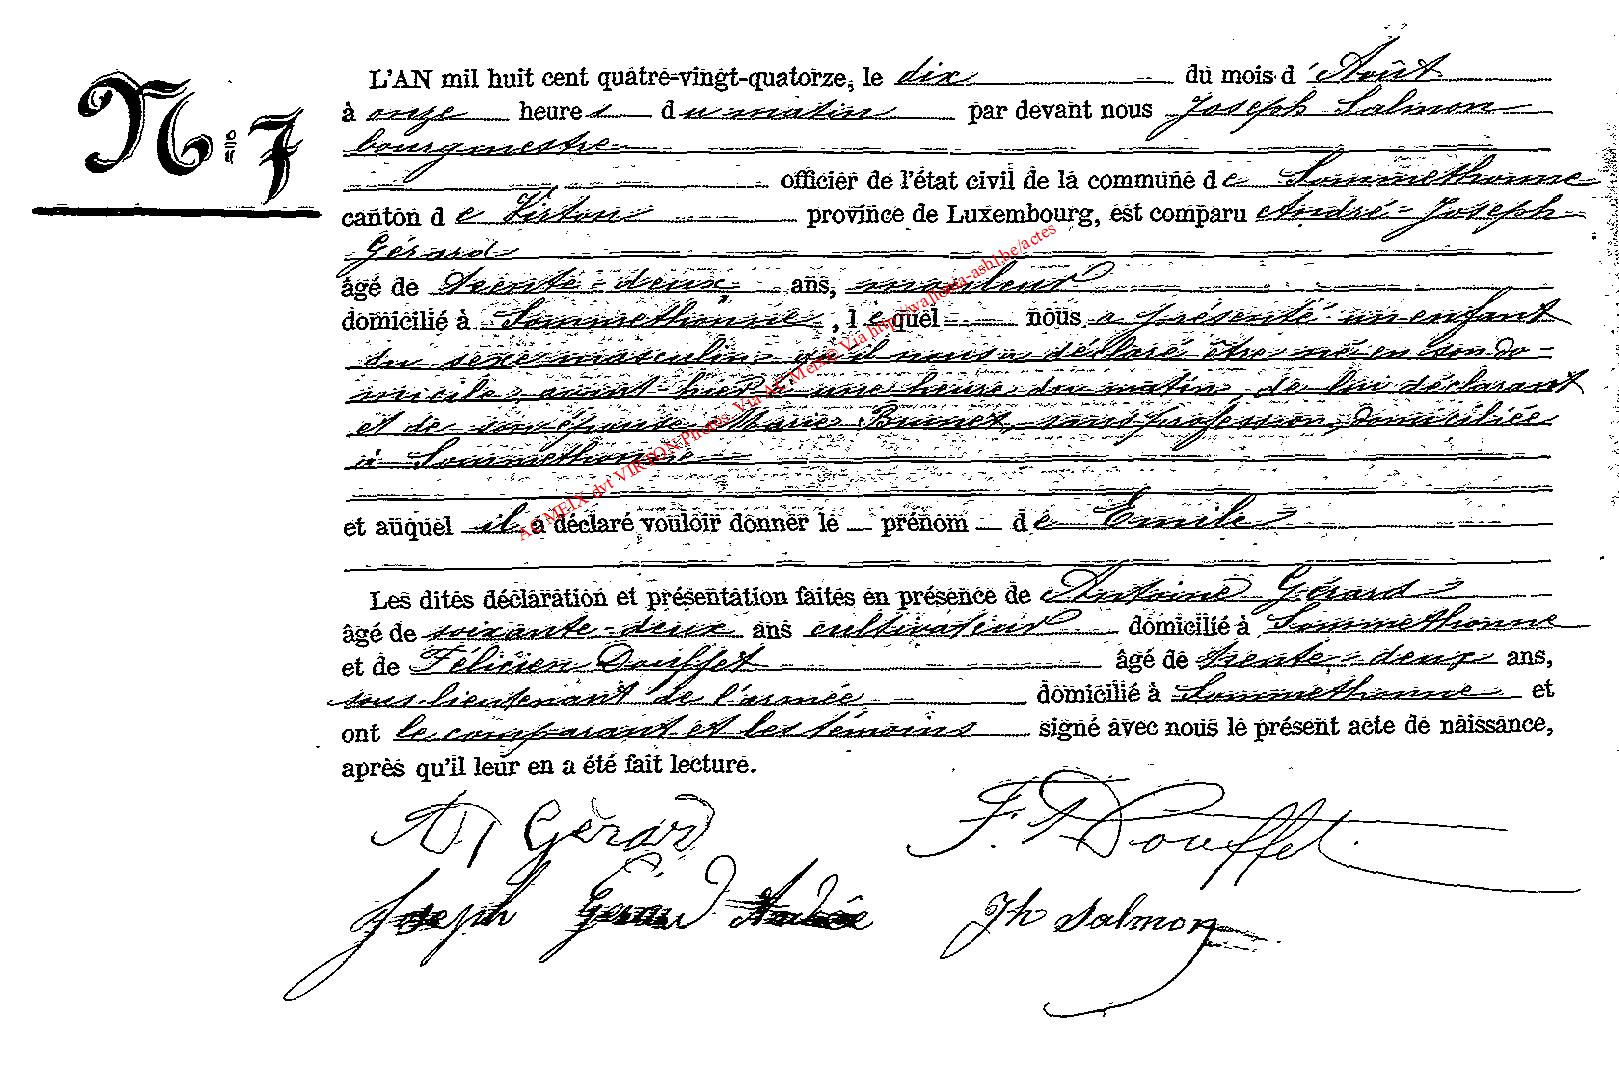 N° 7
L'AN mil huit cent quatre-vingt-quatorze, le dix du mois d'Août
à onze heures du matin par devant nous Joseph Salmon
bourgmestre
officier de l'état civil de la commune de Sommethonne
canton de Virton province de Luxembourg, est comparu André-Joseph
Gérard
âgé de trente-deux ans, mouleur
domicilié à Sommethonne, lequel nous a présenté un enfant
du sexe masculin qu'il nous a déclaré être né en son do-
micile, avant-hier à une heure du matin, de lui déclarant
et de son épouse Marie Brunet, sans profession, domiciliée
à Sommethonne
et auquel il a déclaré vouloir donner le prénom de Emile
Les dites déclaration et présentation faites en présence de Antoine Gérard
âgé de soixante-deux ans cultivateur domicilié à Sommethonne
et de Félicien Douffet âgé de trente-deux ans,
sous lieutenant de l'armée domicilié à Sommethonne et
ont le comparant et les témoins signé avec nous le présent acte de naissance,
après qu'il leur en a été fait lecture.
Gérard F. Douffet
Joseph Gerard André Jh Salmon
AC MEIX dvt VIRTON Photos. Via AC Meix. Via http://wallonia-asbl.be/actes